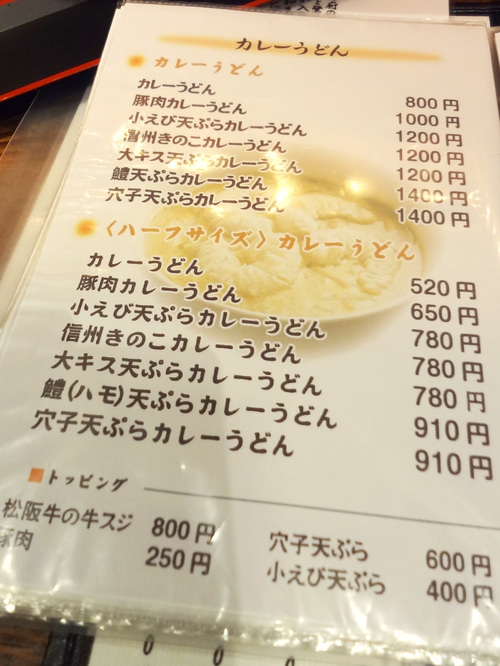 カレーうどん
カレーうどん
カレーうどん 800円
豚肉カレーうどん 1000円
小えび天ぷらカレーうどん 1200円
信州きのこカレーうどん 1200円
大キス天ぷらカレーうどん 1200円
鱧天ぷらカレーうどん 1400円
穴子天ぷらカレーうどん 1400円
〈ハーフサイズ〉カレーうどん
カレーうどん 520円
豚肉カレーうどん 650円
小えび天ぷらカレーうどん 780円
信州きのこカレーうどん 780円
大キス天ぷらカレーうどん 780円
鱧(ハモ)天ぷらカレーうどん 910円
穴子天ぷらカレーうどん 910円
トッピング
松阪牛の牛スジ 800円 穴子天ぷら 600円
豚肉 250円 小えび天ぷら 400円